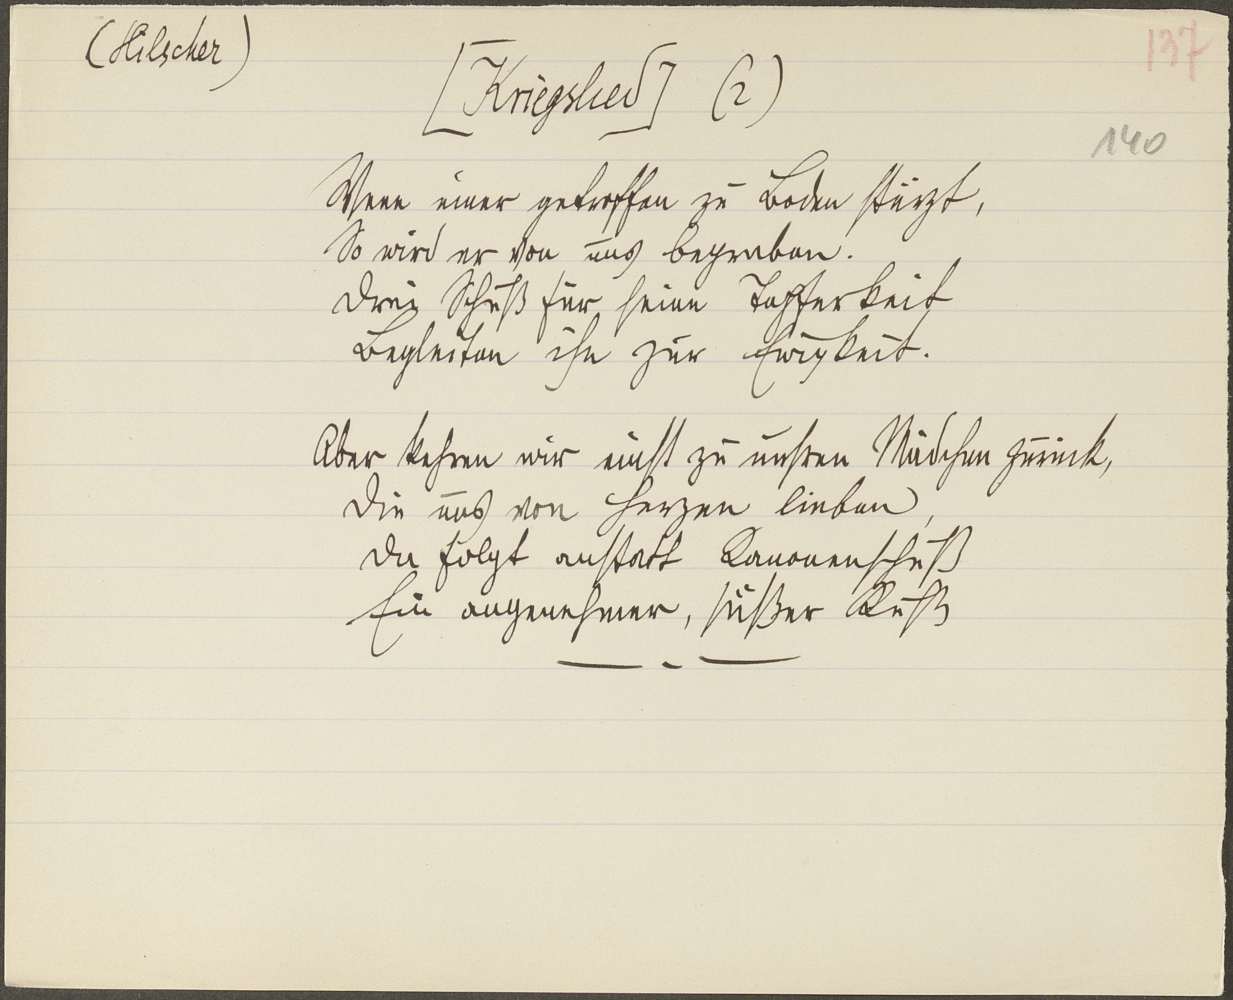 (Hilscher)
137
[Kriegslied] (2)
140
Wenn einer getroffen zu Boden stürzt,
So wird er von uns begraben.
Drei Schuß für seine Tapferkeit
Begleiten ihn zur Ewigkeit.
Aber kehren wir einst zu unsren Mädchen zurück,
Die uns von Herzen lieben,
Da folgt anstatt Kanonenschuß
Ein angenehmer, süßer Kuß